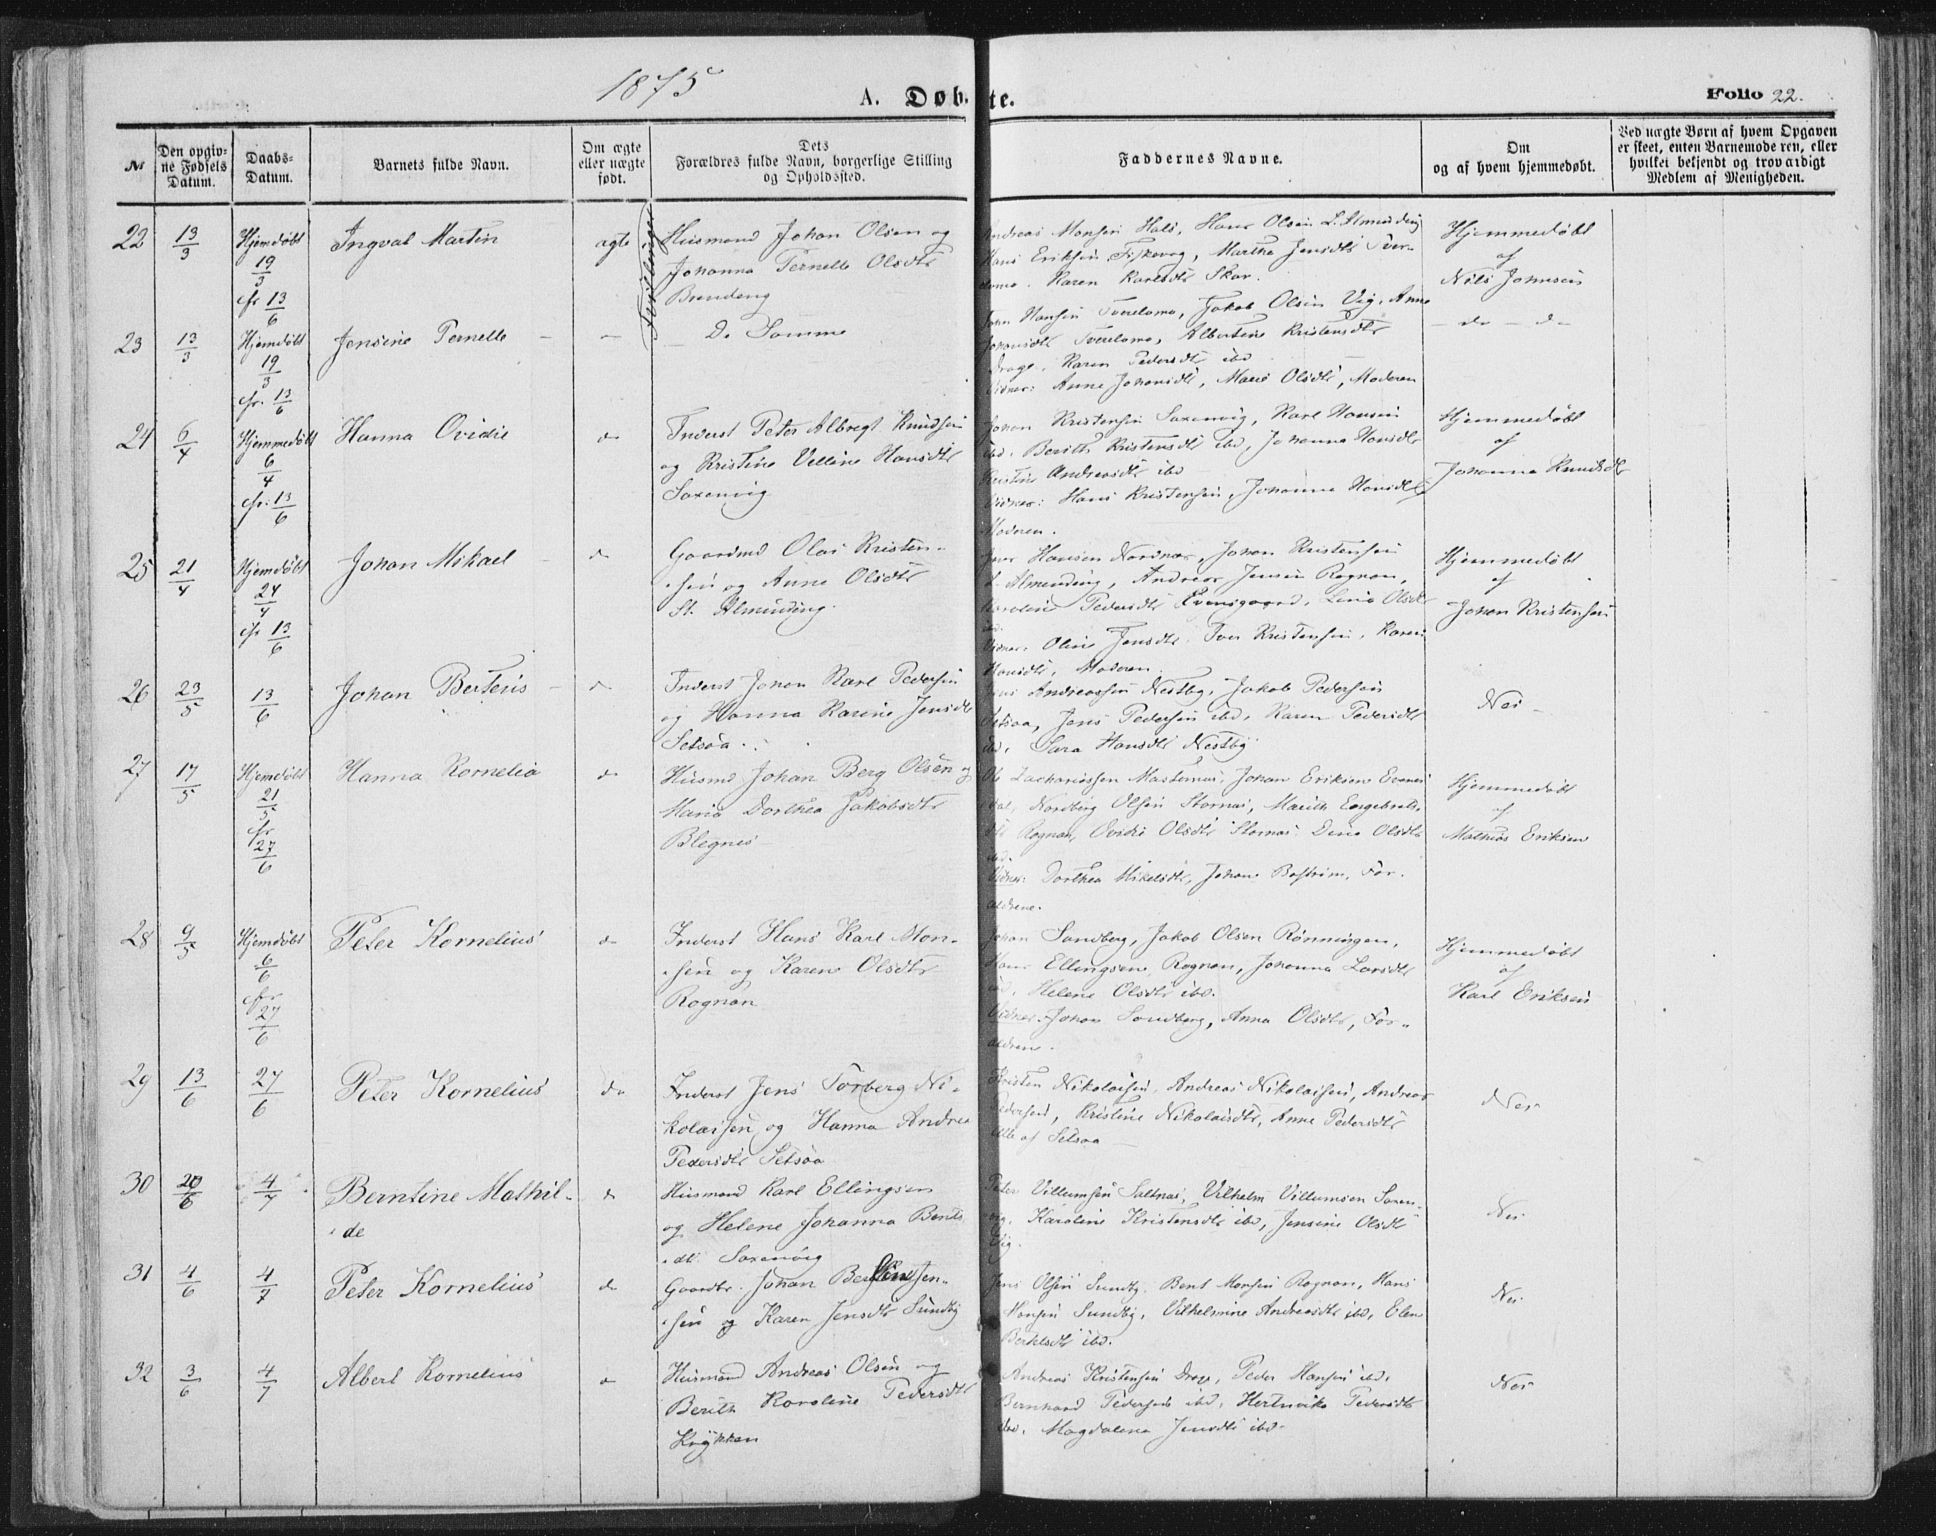 1875
A. Døbte.
Folio 22.
№
Den opgivne Fødsels Datum.
Daabs-Datum.
Barnets fulde Navn.
Om ægte eller uægte født.
Dets Forældres fulde Navn, borgerlige Stilling og Opholdssted.
Faddernes Navne.
Om og af hvem hjemmedøbt.
Ved uægte Børn af hvem Opgaven er skeet, enten Barnemoderen, eller hvilket bekjendt og troværdigt Medlem af Menigheden.
Tvillinger
22 13/3 Hjemdøbt 19/3 cfr 13/6 Ingval Martin ægte
Husmand Johan Olsen og
Johanna Pernelle Olsdtr
Brændeng
Andreas Monsen Hals, Hans Olsen L. Almending
Hans Eriksen Fiskevag, Martha Jensdtr Tver-
Karen Karlsdtr Skar.
Hjemmedøbt
af
Nils Johnsen
23 13/3 Hjemdøbt 19/3 cfr. 13/6 Jensine Pernelle —
De Samme
John Hansen Tveraamo, Jakob Olsen Vig, Anne
Johansdtr Tveraamo, Albertine Kristensdtr
Drage, Karen Pedersdtr ibd
Vidner: Anne Johansdtr, Marie Olsdtr, Moderen
— do — do
24 6/4 Hjemmedøbt 6/4 cfr. 13/6 Hanna Ovidie do
Inderst Peter Albregt Knudsen
og Kristine Velline Hansdtr
Saxenvig
Johan Kristensen Saxenvig, Karl Hansen
ibd. Berith Kristensdtr ibd, Johanna Hansdtr
Kristine Andreasdtr ibd
Vidner: Hans Kristensen, Johanna Hansdtr
Moderen.
Hjemmedøbt
af
Johanna Knudsdtr
25 21/4 Hjemdøbt 24/4 cfr 13/6 Johan Mikael do
Gaardmd Olai Kristen-
sen og Anne Olsdtr
St. Almending.
Hansen Nordnæs, Johan Kristensen
L. Almending, Andreas Jensen Rognan,
Karoline Pedersdtr Evensgaard, Lena Olsdtr
ibd.
Vidner. Oline Jensdtr. Iver Kristensen, Karen
Hansdtr, Moderen.
Hjemmedøbt
af
Johan Kristensen
26 23/5 13/6 Johan Berteus do
Inderst Johan Karl Pedersen
og Hanna Karine Jensdtr
Setsøa
Andreassen Nestby, Jakob Pedersen
Setsøa, Jens Pedersen ibd, Karen Pedersdtr
ibd, Sara Hansdtr Nestby
Nei
27 17/5 Hjemdøbt 21/5 cfr 27/6 Hanna Kornelia do
Husmd Johan Berg Olsen og
Maria Dorthea Jakobsdtr
Blegnes
Ole Zachariassen Masternes, Johan Eriksen Evenes-
dal, Nordberg Olsen Stornes, Marith Engebrets-
dtr Rognan, Ovidie Olsdtr Stornes. Dina Olsdtr
ibd.
Vidner: Dorthea Mikelsdtr, Johan Bostrøm, For-
ældrene.
Hjemmedøbt
af
Mathias Eriksen
28 9/5 Hjemdøbt 6/6 cfr 27/6 Peter Kornelius do
Inderst Hans Karl Mon-
sen og Karen Olsdtr
Rognan
Johan Sandberg, Jakob Olsen Rønningen,
Hans Ellingsen, Rognan, Johanna Larsdtr
ibd, Helene Olsdtr ibd.
Vidner. Johan Sandberg, Anna Olsdtr, For-
ældrene.
Hjemmedøbt
af
Karl Eriksen
29 13/6 27/6 Peter Kornelius do
Inderst Jens Torberg Ni-
kolaisen og Hanna Andrea
Pedersdtr Setsøa
Kristen Nikolaisen, Andreas Nikolaisen, Andreas
Pedersen, Kristine Nikolaisdtr, Anne Pedersdtr
alle af Setsaa
Nei
30 20/6 4/7 Berntine Mathil- do
de
Husmand Karl Ellingsen
og Helene Johanna Bents-
dtr. Saxenvig
Peter Villumsen Saltnes, Vilhelm Villumsen Saxen-
vig, Karoline Kristensdtr ibd, Jensine Olsdtr
Vig.
Nei
31 4/6 4/7 Peter Kornelius do
Gaardbr. Johan Jen-
sen og Karen Jensdtr Sundby
Jens Olsen Sundby. Bent Monsen Rognan, Hans
Monsen Sundby, Vilhelmine Andreasdtr ibd, Elen
Bertelsdtr ibd.
Nei.
32 3/6 4/7 Albert Kornelius do
Husmand Andreas Olsen og
Berith Karoline Pedersdtr
Krykken
Andreas Kristensen Drage, Peder Hansen ibd,
Bernhard Pedersen ibd, Hertnvika Pedersdtr
ibd, Magdalena Jensdtr ibd.
Nei